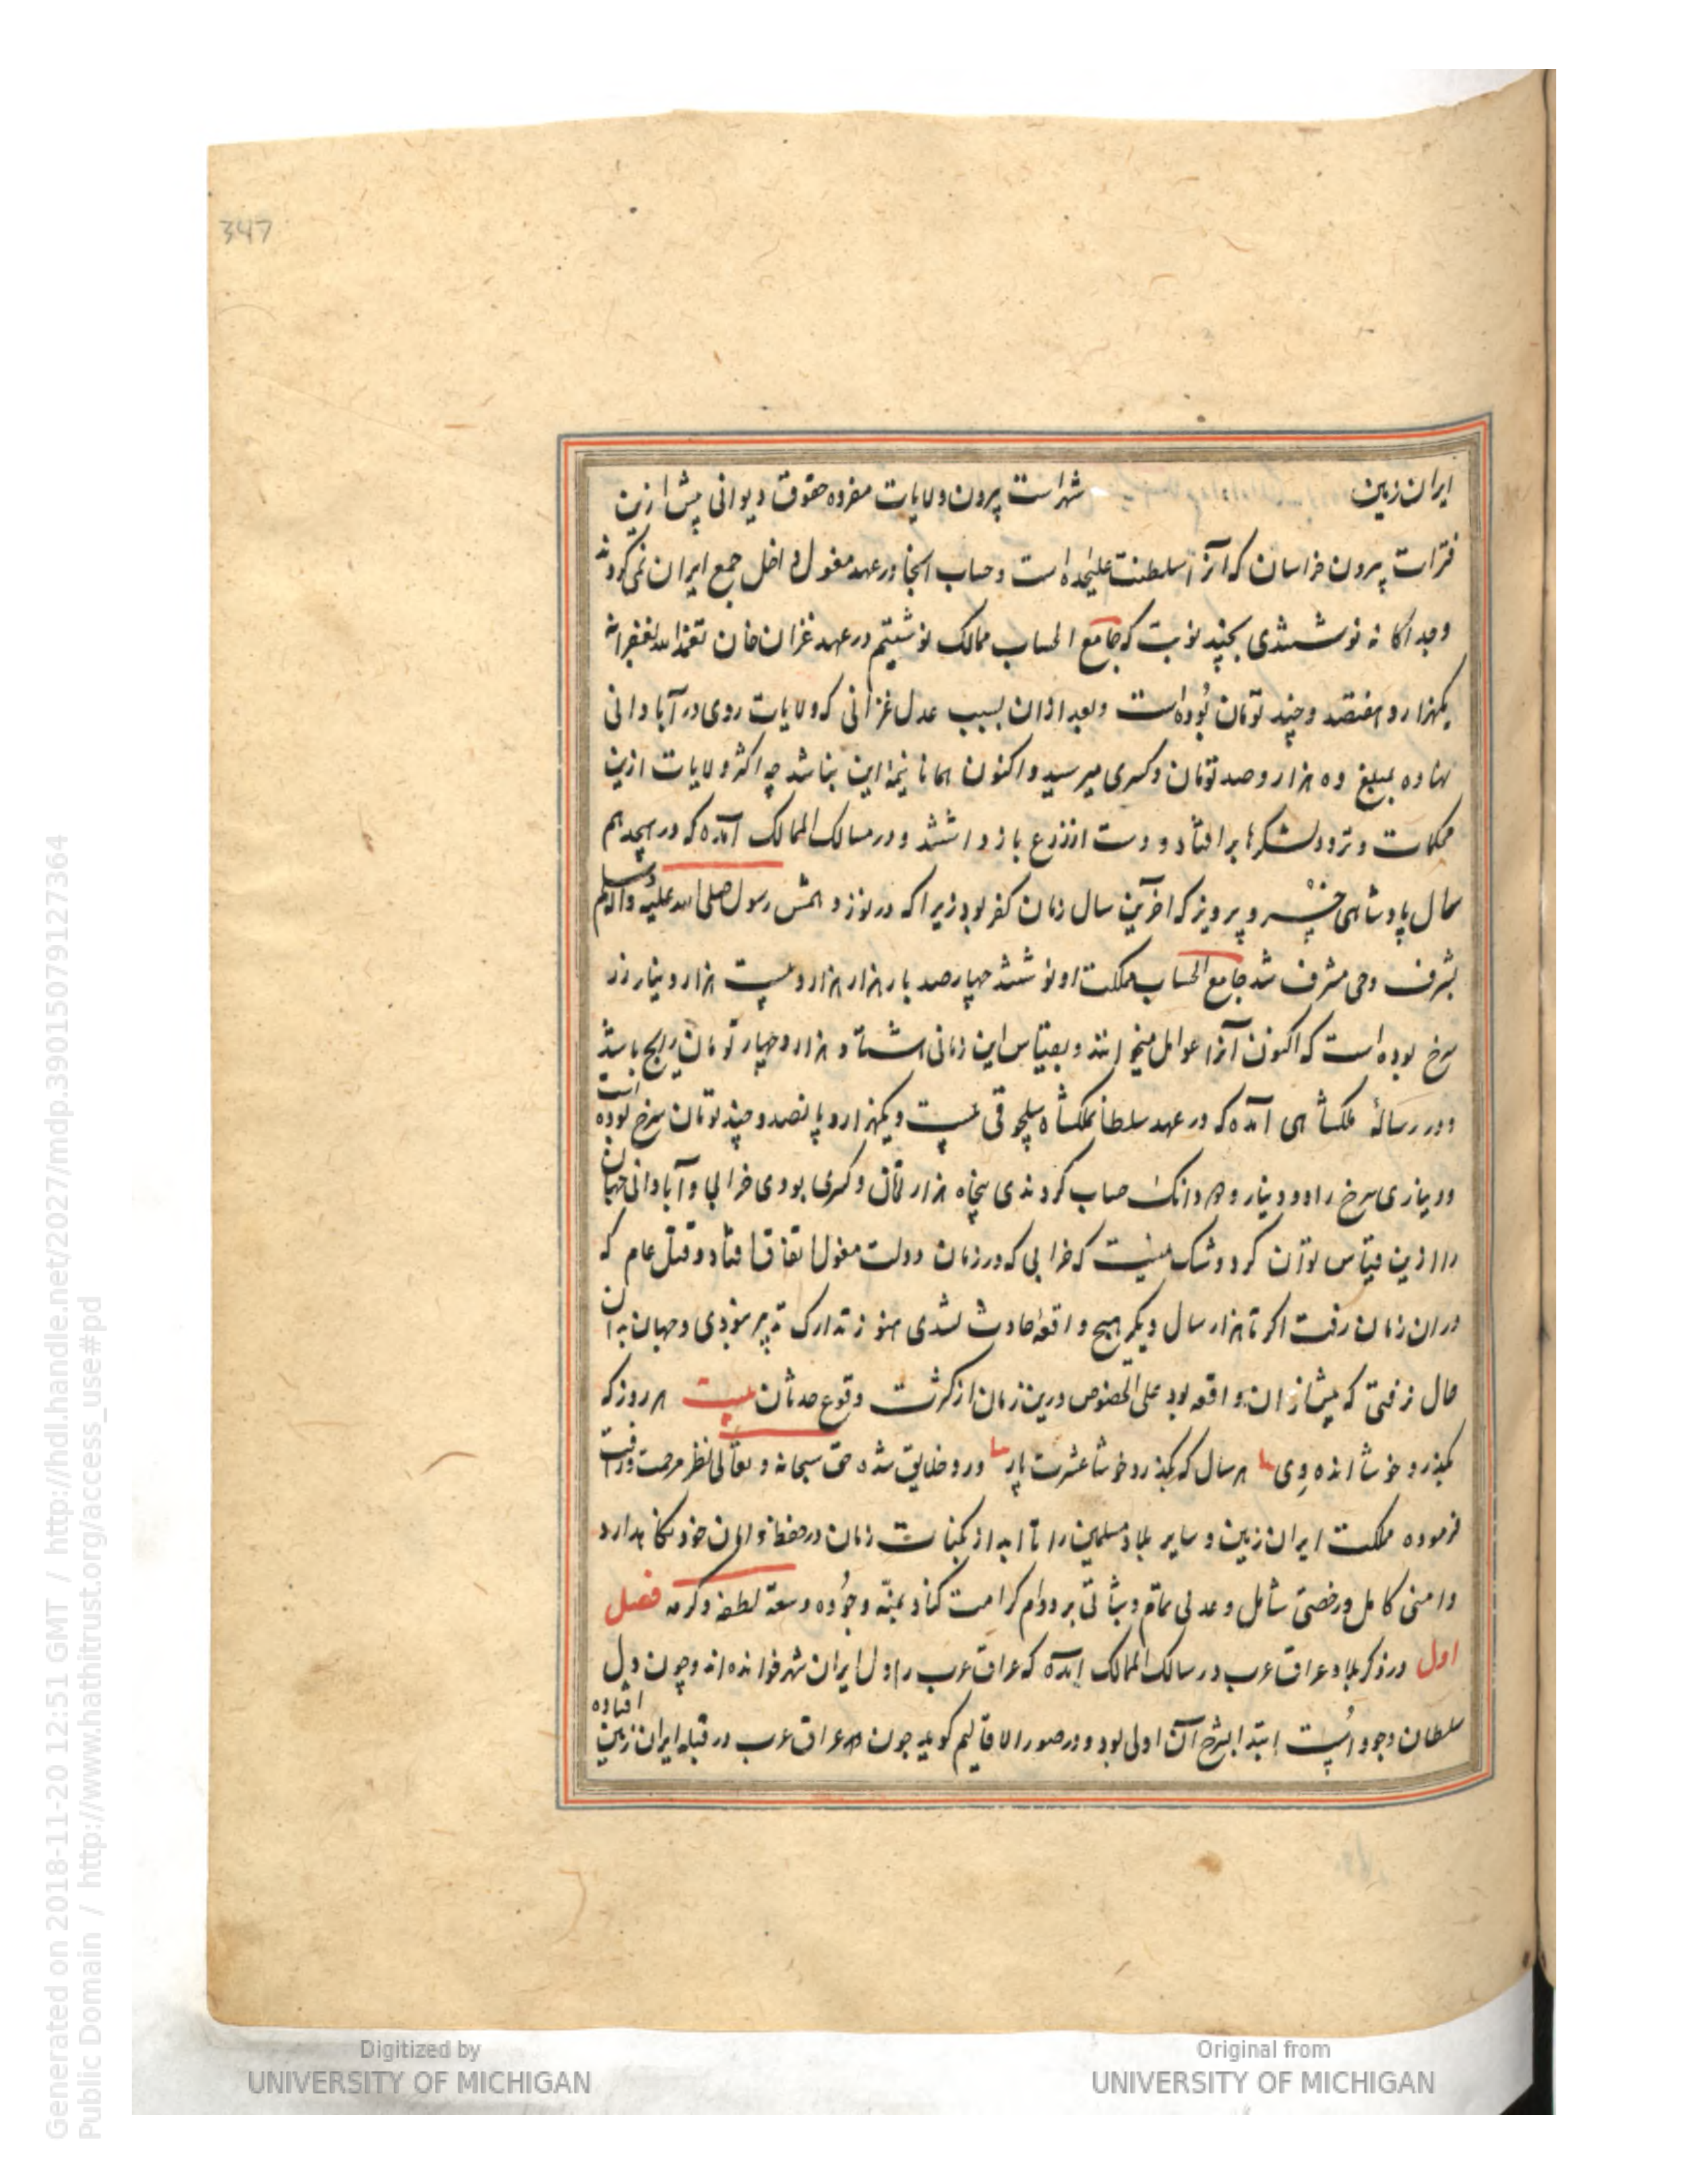 347
ایران زمین شهراست بیرون ولایات مفرده حقوق دیوانی پیش ازین
فترات بیرون خراسان که آنرا سلطنت علیحده است و حساب آنجا در عهد مغول داخل جمع ایران نمی کردند
وجداکانه نوشتندی بچند نوبت که جامع الحساب ممالک نوشتیم در عهد غزان خان تغمد الله بغفرانه
یکهزار و هفتصد و چند تومان بوده است وبعد ازان بسبب عدل غزانی که ولایات روی در آبادانی
نهاده بمبلغ دو هزار وصد تومان و کسری میرسید و اکنون همانا نیمهٔ این نباشد چه اکثر ولایات ازین
تحکمات و تردد لشکرها برافتاد و دست از زرع باز داشتند و در مسالک الممالک آمده که در هیجدهم
سال پادشاهی خسرو پرویز که آخرین سال زمان کفر بود زیرا که در نوزدهمش رسول صلی الله علیه وآله وسلم
بشرف وحی مشرف شد جامع الحساب مملکت او نوشتند چهارصد بار هزار هزار و بیست هزار دینار زر
سرخ بوده است که اکنون آنرا عوامل میخوانند و بقیاس این زمانی هشتاد هزار و چهار تومان رایج باشد
و در رسالهٔ ملکشاهی آمده که در عهد سلطان ملکشاه سلجوقی بیست و یکهزار و پانصد و چند تومان سرخ بوده است
و دیناری سرخ را دو دینار و دو دانک حساب کردندی پنجاه هزار تومان و کسری بودی خرابی و آبادانی جهان
را ازین قیاس توان کرد و شک نیست که خرابی که در زمان دولت مغول اتفاق افتاد و قتل عام که
دران زمان رفت اکر تا هزار سال دیکر هیچ واقعه حادث نشدی هنوز تدارک پذیر نبودی و جهان بدان
حال نرفتی که پیش ازان واقعه بود علی الخصوص درین زمان از کثرت وقوع حدثان بیت هر روز که
بکذرد خوشا انده دی هر سال که بکذرد خوشا عشرت پار ورد خلایق شده حق سبحانه و تعالی نظر مرحمت ورافت
فرموده مملکت ایران زمین و سایر بلاد مسلمین را تا ابد از نکبات زمان در حفظ و امان خود نکاهدارد
وامنی کامل ورخصی شامل و عدلی تمام و ثباتی بر دوام کرامت کناد بمنّه وجوده وسعة لطفه وکرمه فصل
اول در ذکر بلاد عراق عرب در مسالک الممالک آمده که عراق عرب را دل ایران شهر خوانده اند وچون دل
سلطان وجود است ابتدا بشرح آن اولی بود و در صور الاقالیم کوید چون عراق عرب در قبله ایران زمین افتاده
Digitized by
UNIVERSITY OF MICHIGAN
Original from
UNIVERSITY OF MICHIGAN
Generated on 2018-11-20 12:51 GMT / http://hdl.handle.net/2027/mdp.39015079127364
Public Domain / http://www.hathitrust.org/access_use#pd